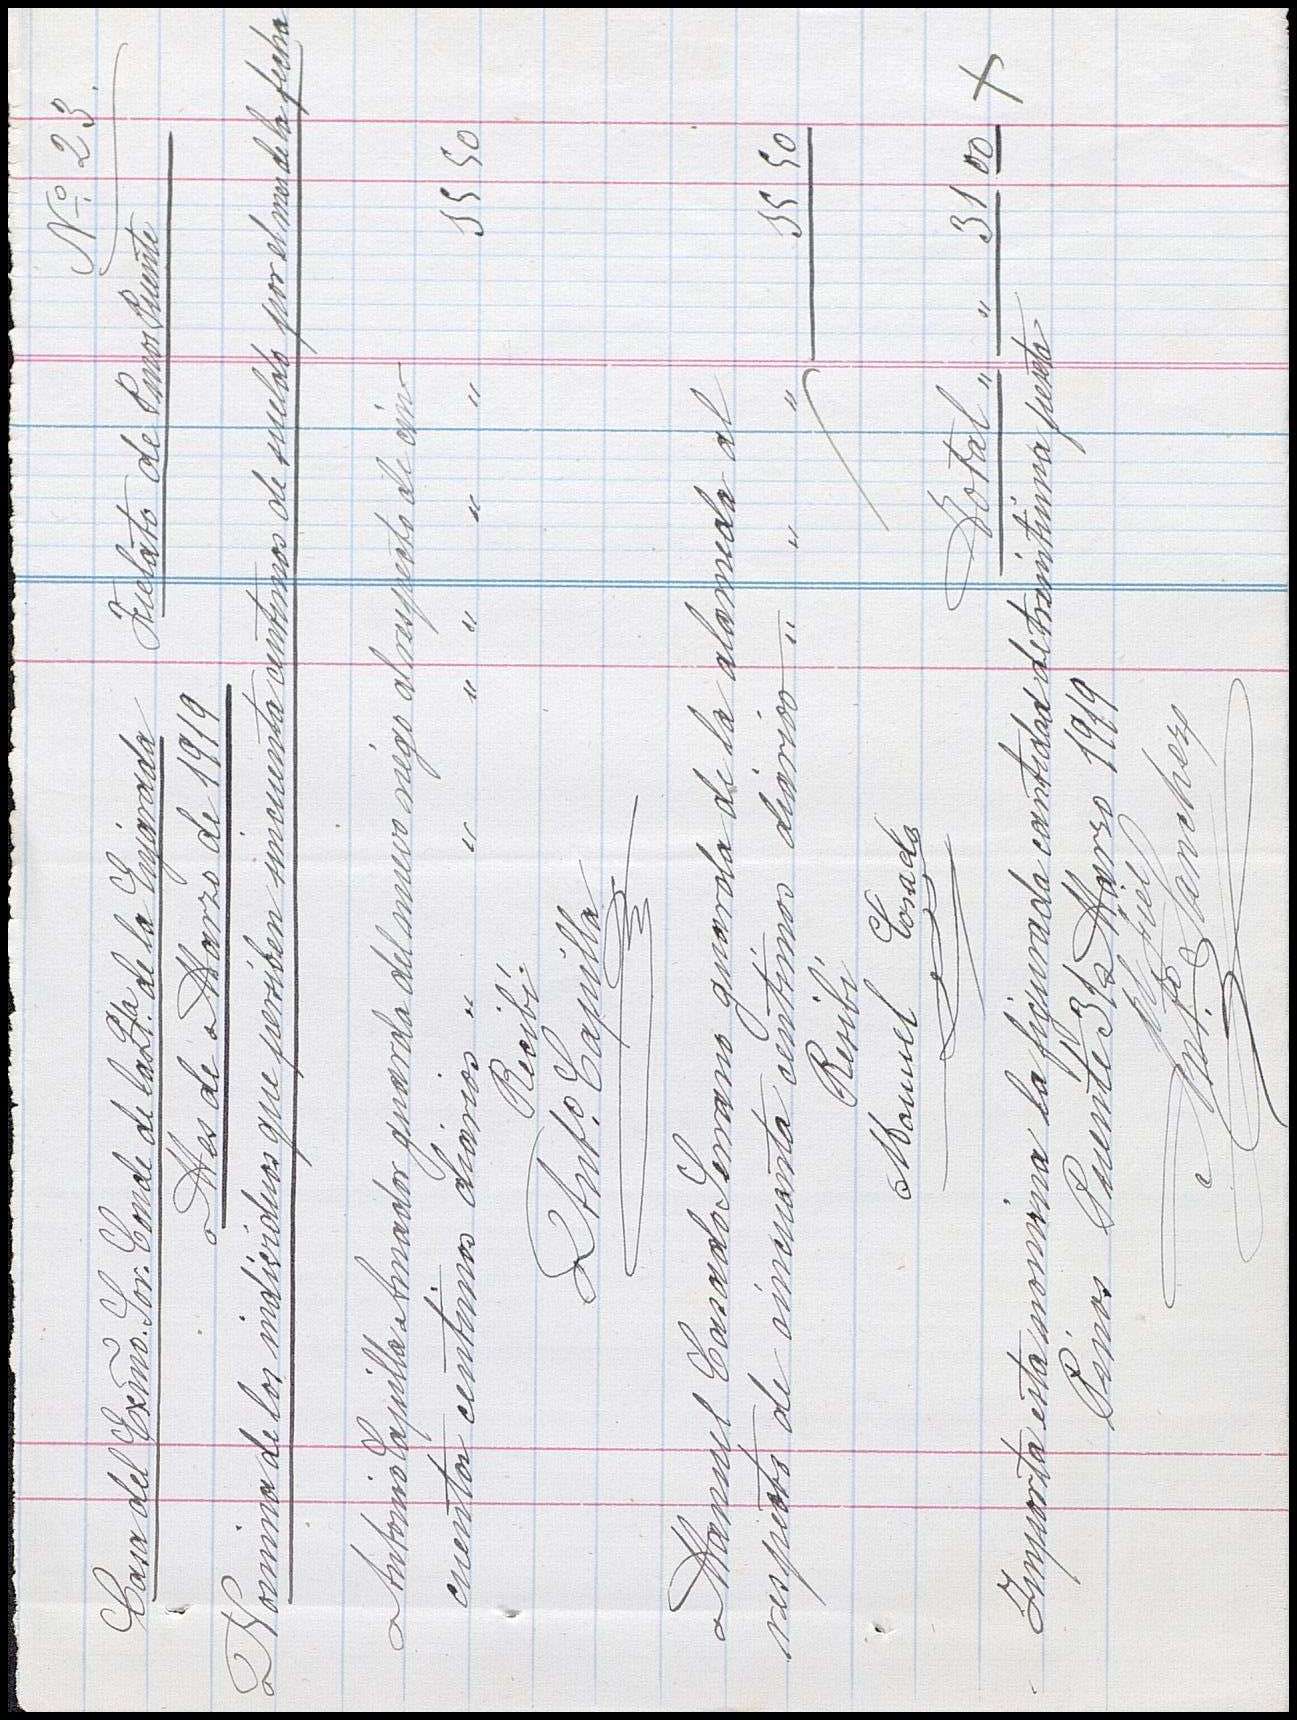 Nº 23.
Casa del Exmo. Sor. Conde de las Ita. de la Enjarada Fielato de Pinos Puente
Mes de Marzo de 1919
Nomina de los individuos que persiben sincuenta centimos de sueldo por el mes de la fecha
Antonio Capilla Amador guarda del nuevo riego al respecto de cin
cuenta centimos diarios " " " " " " 15 50
Recibí.
Antº. Capilla
Manuel Casado Serrano guarda de la alameda al
respecto de cincuenta centimos diarios " " " 15 50
Resibi
Manuel Cosado
Total " " 31 00
Importa esta nomina la figurada cantidad de treintiuna peseta
Pinos Puente 31 Marzo 1919
El Fiel
Antº. Sanchez